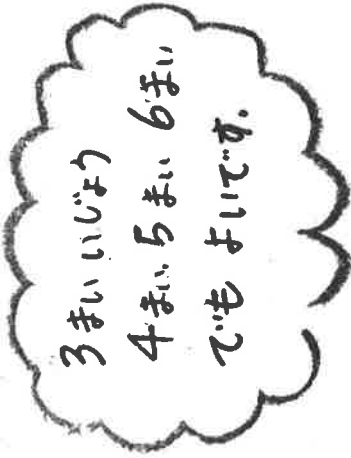 3まいいじょう
4まい 5まい 6まい
でも よいです.